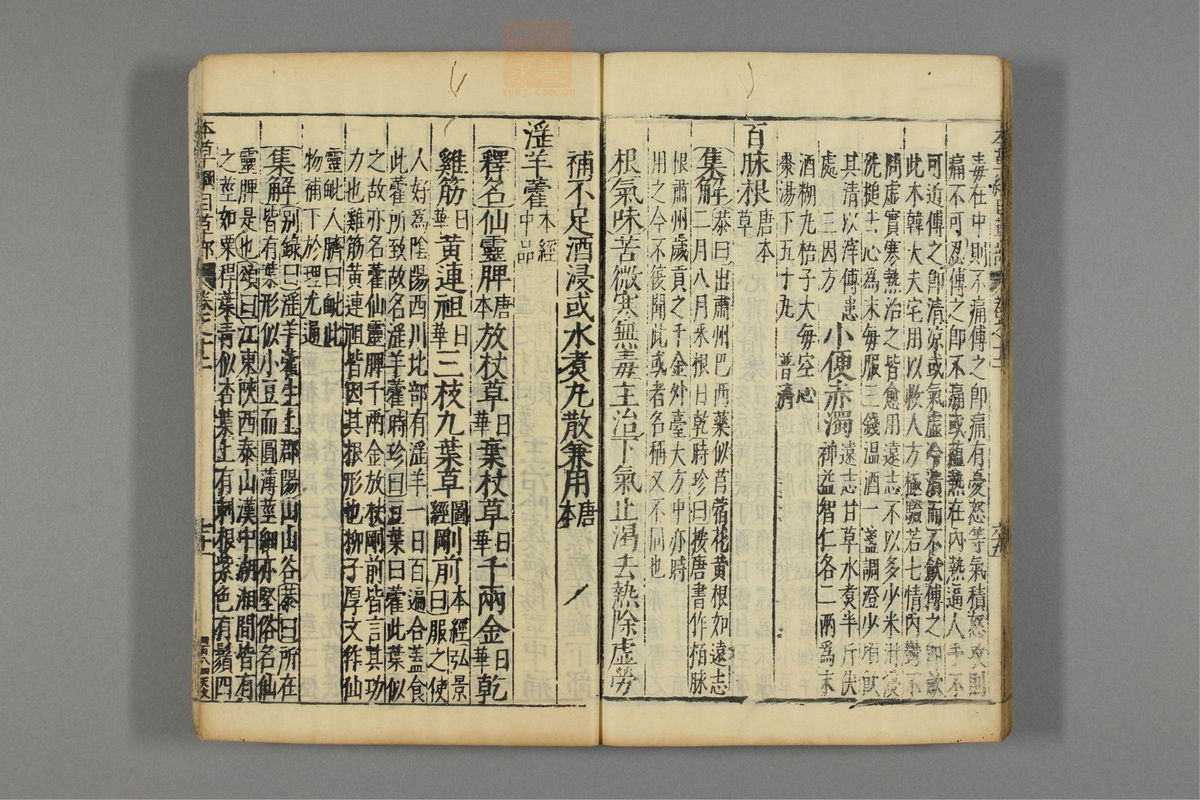 毒在中則不痛傅之即痛有憂怒等氣積怒攻則
痛不可忍傅之即不痛或蘊熱在內熱逼人手不
可近傅之即清涼或氣虛冷潰而不斂傅之即斂
此本韓大夫宅用以救人方極驗若七情內鬱不
問虛實寒熱治之皆愈用遠志不以多少米泔浸
洗搥去心為末每服三錢溫酒一盞調澄少頃飲
其清以滓傅患
處三因方
小便赤濁
遠志甘草水煮半斤伏
神益智仁各二兩為末
酒糊丸梧子大每空心
棗湯下五十丸
普濟
百脉根
唐本
草
集解
恭曰出肅州巴西葉似苜蓿花黃根如遠志
二月八月采根日乾時珍曰按唐書作栢脉
根肅州歲貢之千金外臺大方中亦時
用之今不復聞此或者名稱又不同也
根氣味苦微寒無毒主治下氣止渴去熱除虛勞
補不足酒浸或水煮丸散兼用
唐本
淫羊藿
本經
中品
釋名仙靈脾
唐本
放杖草
日華
棄杖草
日華
千兩金
日華
乾
雞筋
日華
黃連祖
日華
三枝九葉草
圖經
剛前
本經弘景
曰服之使
人好為陰陽西川北部有淫羊一日百遍合蓋食
此藿所致故名淫羊藿時珍曰豆葉曰藿此葉似
之故亦名藿仙靈脾千兩金放杖剛前皆言其功
力也雞筋黃連祖皆因其根形也柳子厚文作仙
靈毗人臍曰毗此
物補下於理尤通
集解
別錄曰淫羊藿生上郡陽山山谷恭曰所在
皆有葉形似小豆而圓薄莖細亦堅俗名仙
靈脾是也頌曰江東陝西泰山漢中湖湘間皆有
之莖如粟稈葉青似杏葉上有刺根紫色有鬚四